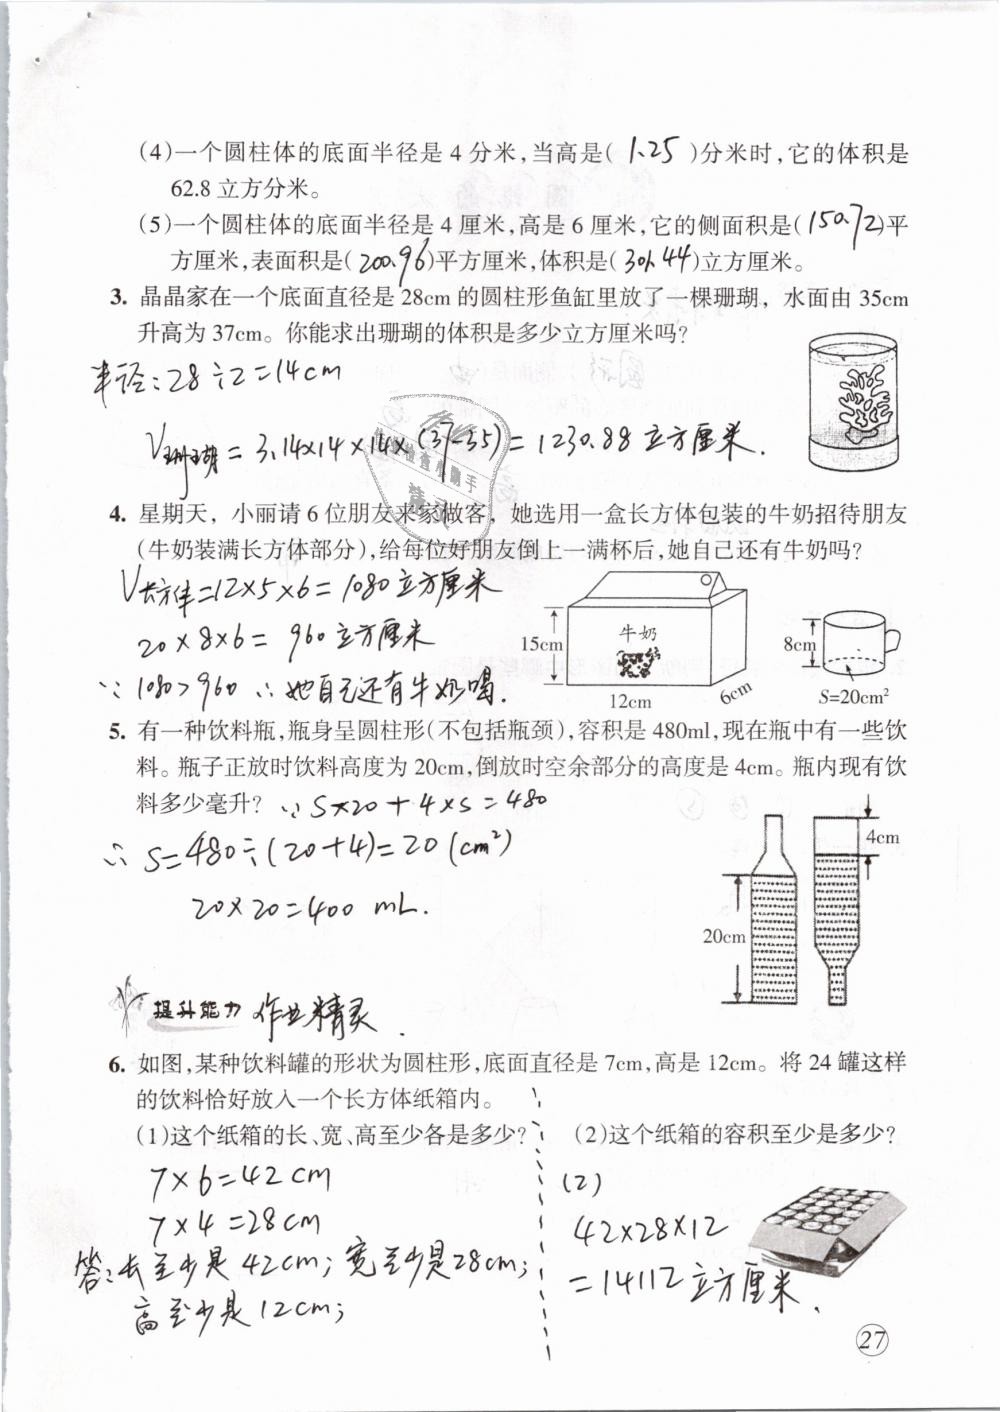 (4)一个圆柱体的底面半径是 4 分米,当高是( 1.25 )分米时,它的体积是
62.8 立方分米。
(5)一个圆柱体的底面半径是 4 厘米,高是 6 厘米,它的侧面积是( 150.72 )平
方厘米,表面积是( 200.96 )平方厘米,体积是( 301.44 )立方厘米。
3. 晶晶家在一个底面直径是 28cm 的圆柱形鱼缸里放了一棵珊瑚，水面由 35cm
升高为 37cm。你能求出珊瑚的体积是多少立方厘米吗?
半径:28÷2=14cm
V珊瑚=3.14×14×14×(37-35)=1230.88 立方厘米.
4. 星期天，小丽请 6 位朋友来家做客，她选用一盒长方体包装的牛奶招待朋友
(牛奶装满长方体部分),给每位好朋友倒上一满杯后,她自己还有牛奶吗?
V长方体=12×5×6=1080立方厘米
20×8×6=960立方厘米
∵1080>960 ∴她自己还有牛奶喝.
15cm
牛奶
12cm
6cm
8cm
S=20cm²
5. 有一种饮料瓶,瓶身呈圆柱形(不包括瓶颈),容积是 480ml,现在瓶中有一些饮
料。瓶子正放时饮料高度为 20cm,倒放时空余部分的高度是 4cm。瓶内现有饮
料多少毫升? ∵S×20+4×S=480
∴ S=480÷(20+4)=20(cm²)
20×20=400 mL.
4cm
20cm
提升能力 作业精灵.
6. 如图,某种饮料罐的形状为圆柱形,底面直径是 7cm,高是 12cm。将 24 罐这样
的饮料恰好放入一个长方体纸箱内。
(1)这个纸箱的长、宽、高至少各是多少? (2)这个纸箱的容积至少是多少?
7×6=42cm
7×4=28cm
答:长至少是42cm;宽至少是28cm;
高至少是12cm;
(2)
42×28×12
=14112立方厘米.
27